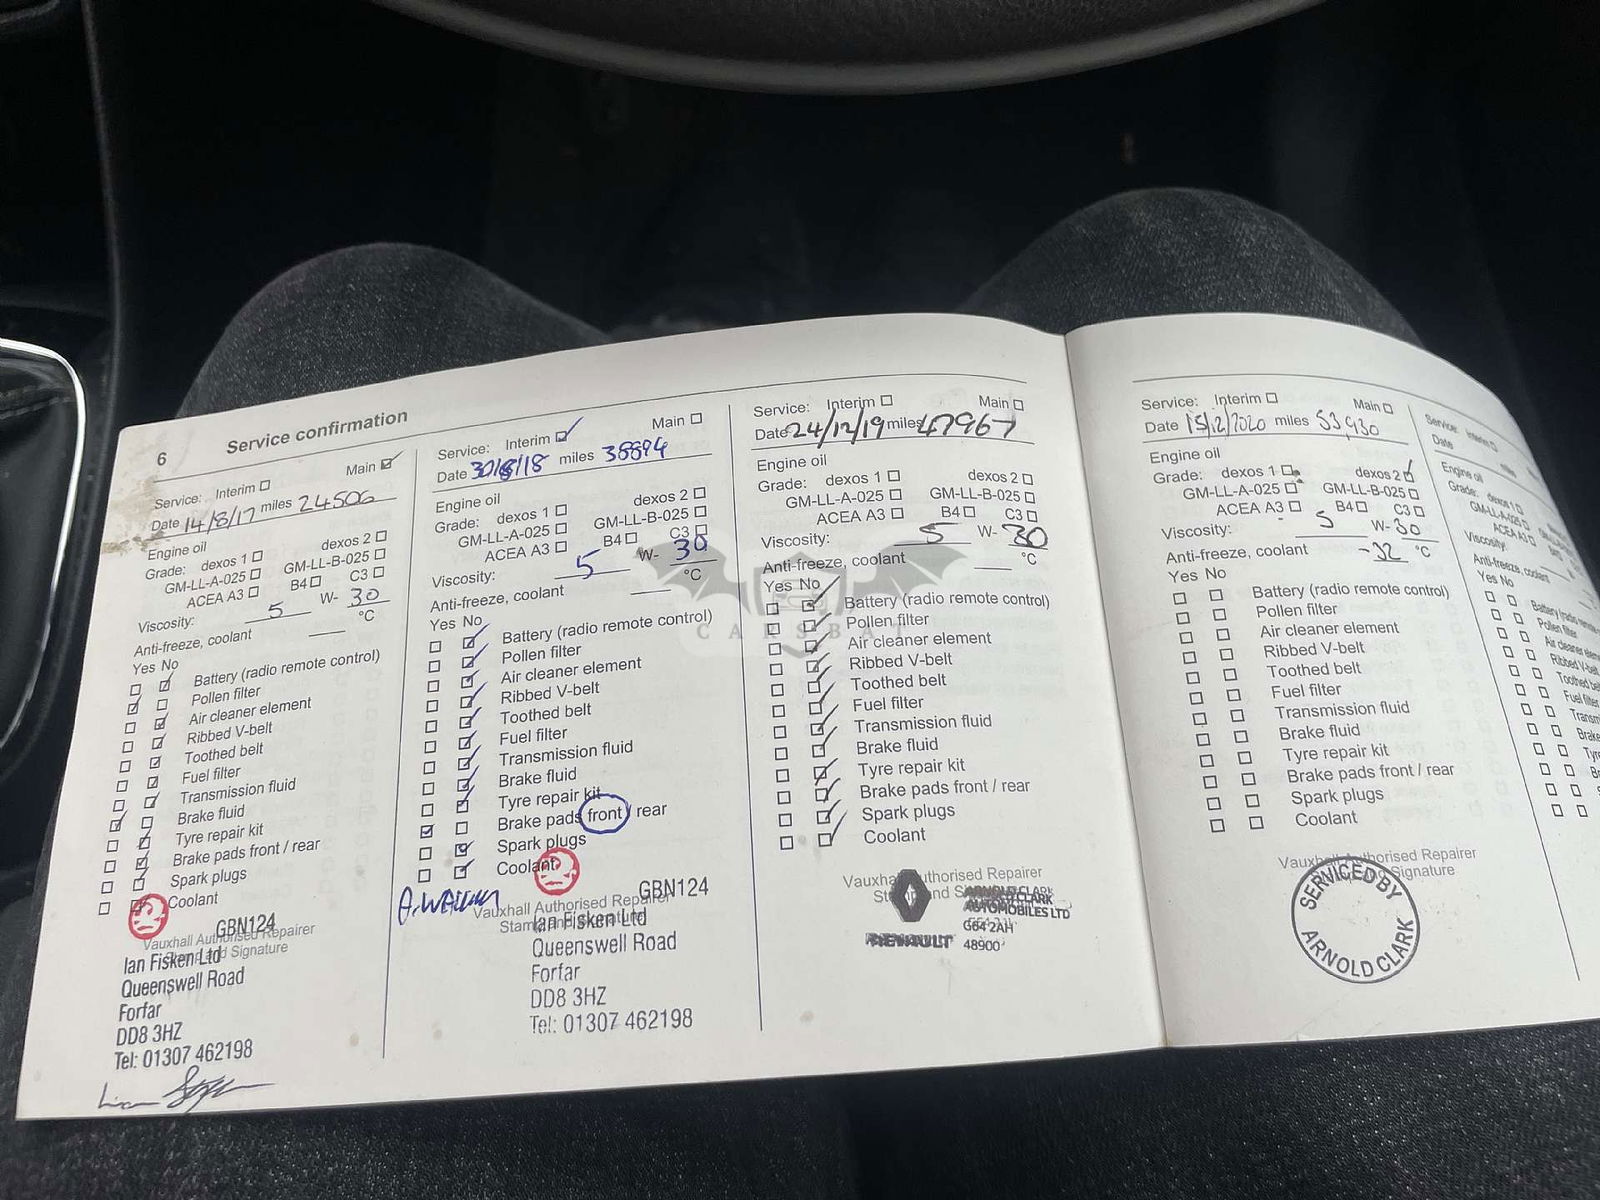 6
Service confirmation
Service: Interim Main
Date 14/8/17 miles 24506
Engine oil
Grade: dexos 1 dexos 2
GM-LL-A-025 GM-LL-B-025
ACEA A3 B4 C3
Viscosity: 5 W- 30
Anti-freeze, coolant °C
Yes No
Battery (radio remote control)
Pollen filter
Air cleaner element
Ribbed V-belt
Toothed belt
Fuel filter
Transmission fluid
Brake fluid
Tyre repair kit
Brake pads front / rear
Spark plugs
Coolant
GBN124
Vauxhall Authorised Repairer
Stamp and Signature
Ian Fisken Ltd
Queenswell Road
Forfar
DD8 3HZ
Tel: 01307 462198
Service: Interim Main
Date 30/8/18 miles 38894
Engine oil
Grade: dexos 1 dexos 2
GM-LL-A-025 GM-LL-B-025
ACEA A3 B4 C3
Viscosity: 5 W- 30
Anti-freeze, coolant °C
Yes No
Battery (radio remote control)
Pollen filter
Air cleaner element
Ribbed V-belt
Toothed belt
Fuel filter
Transmission fluid
Brake fluid
Tyre repair kit
Brake pads front / rear
Spark plugs
Coolant
GBN124
Vauxhall Authorised Repairer
Stamp and Signature
Ian Fisken Ltd
Queenswell Road
Forfar
DD8 3HZ
Tel: 01307 462198
Service: Interim Main
Date 24/12/19 miles 47967
Engine oil
Grade: dexos 1 dexos 2
GM-LL-A-025 GM-LL-B-025
ACEA A3 B4 C3
Viscosity: 5 W- 30
Anti-freeze, coolant °C
Yes No
Battery (radio remote control)
Pollen filter
Air cleaner element
Ribbed V-belt
Toothed belt
Fuel filter
Transmission fluid
Brake fluid
Tyre repair kit
Brake pads front / rear
Spark plugs
Coolant
Vauxhall Authorised Repairer
Stamp and Signature
ARNOLD CLARK
AUTOMOBILES LTD
G64 2AH
RENAULT 48900
CARSBAT
Service: Interim Main
Date 15/12/2020 miles 53,930
Engine oil
Grade: dexos 1 dexos 2
GM-LL-A-025 GM-LL-B-025
ACEA A3 B4 C3
Viscosity: 5 W- 30
Anti-freeze, coolant -32 °C
Yes No
Battery (radio remote control)
Pollen filter
Air cleaner element
Ribbed V-belt
Toothed belt
Fuel filter
Transmission fluid
Brake fluid
Tyre repair kit
Brake pads front / rear
Spark plugs
Coolant
Vauxhall Authorised Repairer
Stamp and Signature
SERVICED BY
ARNOLD CLARK
Service: Interim
Date
Engine oil
Grade: dexos 1
Viscosity:
Anti-freeze, coolant
Yes No
Battery (radio remote
Pollen filter
Air cleaner
Ribbed V-belt
Toothed
Fuel filter
Brake